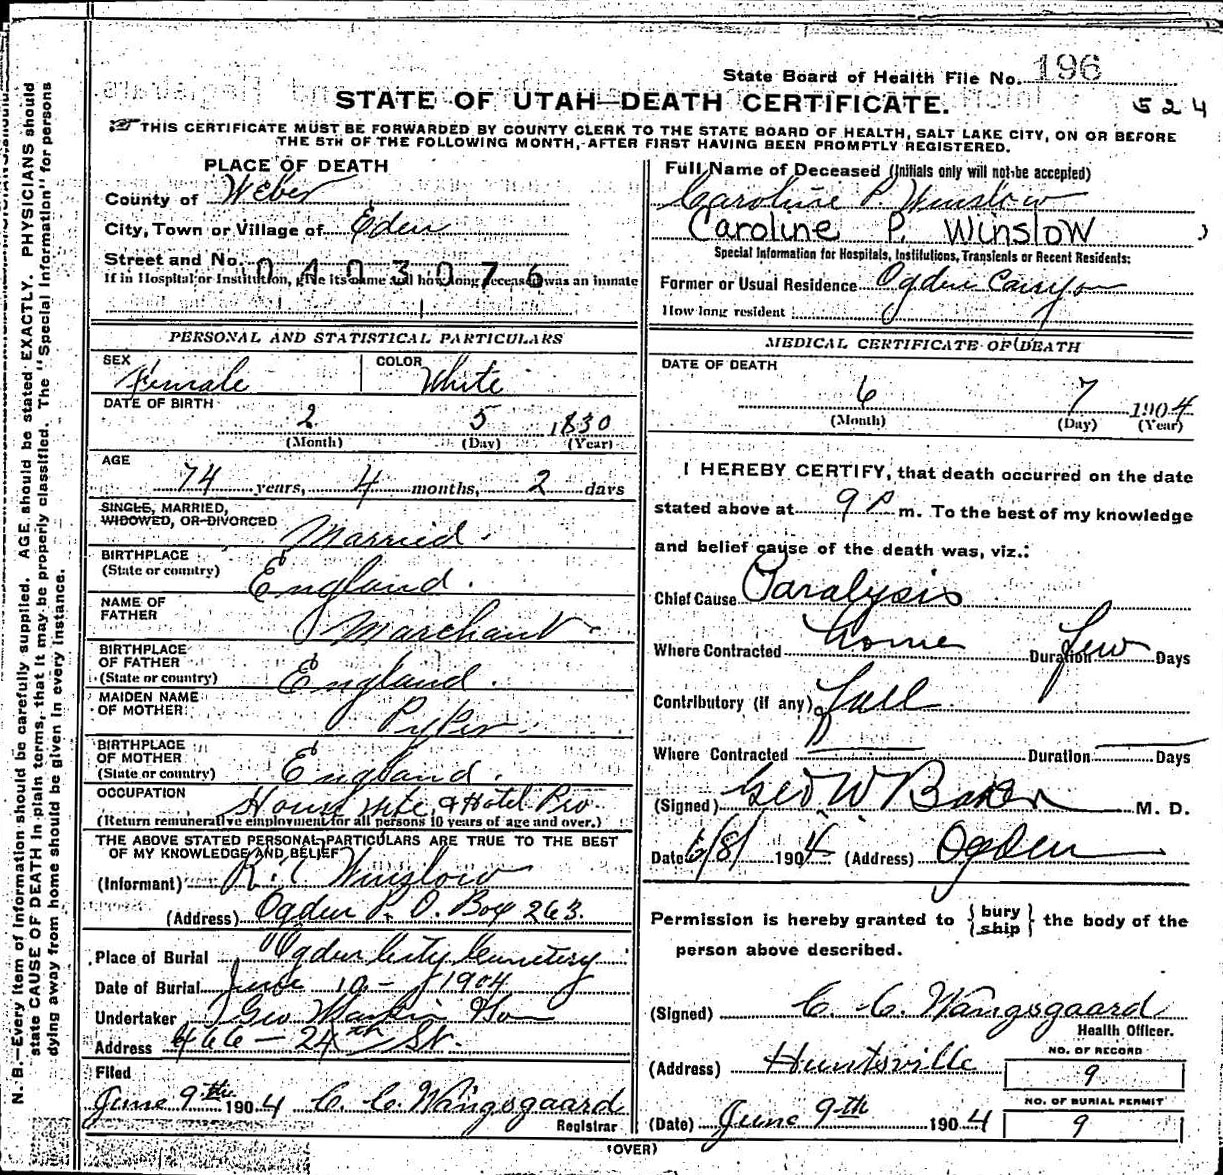 State Board of Health File No. 196
STATE OF UTAH—DEATH CERTIFICATE.
524
THIS CERTIFICATE MUST BE FORWARDED BY COUNTY CLERK TO THE STATE BOARD OF HEALTH, SALT LAKE CITY, ON OR BEFORE
THE 5TH OF THE FOLLOWING MONTH, AFTER FIRST HAVING BEEN PROMPTLY REGISTERED.
PLACE OF DEATH
County of Weber
City, Town or Village of Eden
Street and No.
0403076
If in Hospital or Institution, give its name and how long deceased was an inmate
PERSONAL AND STATISTICAL PARTICULARS
SEX Female COLOR White
DATE OF BIRTH
2 5 1830
(Month) (Day) (Year)
AGE
74 years, 4 months, 2 days
SINGLE, MARRIED,
WIDOWED, OR DIVORCED Married.
BIRTHPLACE
(State or country) England.
NAME OF
FATHER Marchant
BIRTHPLACE
OF FATHER
(State or country) England.
MAIDEN NAME
OF MOTHER
BIRTHPLACE
OF MOTHER
(State or country) England.
OCCUPATION House wife, & Hotel Pro.
(Return remunerative employment for all persons 10 years of age and over.)
THE ABOVE STATED PERSONAL PARTICULARS ARE TRUE TO THE BEST
OF MY KNOWLEDGE AND BELIEF
(Informant) Winslow
(Address) Ogden P. O. Box 263.
Place of Burial Ogden City Cemetery
Date of Burial June 10 - 1904
Undertaker Geo
Address 466 - 24th St.
Filed
June 9th 1904 C. C. Wangsgaard
Registrar
Full Name of Deceased (Initials only will not be accepted)
Caroline P. Winslow
Caroline P. Winslow
Special Information for Hospitals, Institutions, Transients or Recent Residents:
Former or Usual Residence Ogden Canyon
How long resident
MEDICAL CERTIFICATE OF DEATH
DATE OF DEATH
6 7 1904
(Month) (Day) (Year)
I HEREBY CERTIFY, that death occurred on the date
stated above at 9 P m. To the best of my knowledge
and belief cause of the death was, viz.:
Chief Cause Paralysis
Where Contracted home Duration few Days
Contributory (if any) fall
Where Contracted Duration Days
(Signed) Geo W Baker M. D.
Date 6/8/ 1904 (Address) Ogden
Permission is hereby granted to {bury ship} the body of the
person above described.
(Signed) C. C. Wangsgaard
Health Officer.
(Address) Huntsville
NO. OF RECORD
9
(Date) June 9th 1904
NO. OF BURIAL PERMIT
9
(OVER)
N. B.—Every item of information should be carefully supplied. AGE should be stated EXACTLY. PHYSICIANS should
state CAUSE OF DEATH in plain terms, that it may be properly classified. The "Special Information" for persons
dying away from home should be given in every instance.